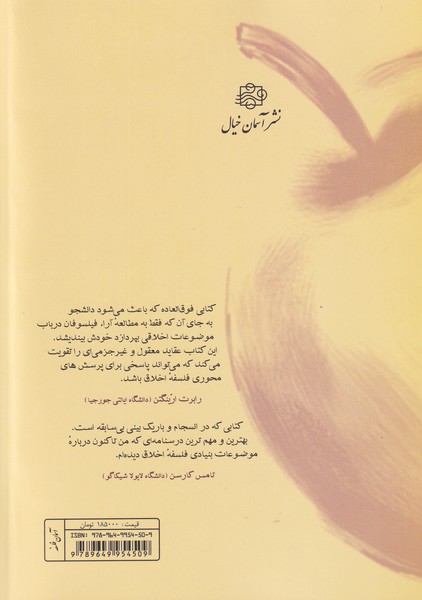 نشر آسمان خیال
کتابی فوق‌العاده که باعث می‌شود دانشجو
به جای آن که فقط به مطالعهٔ آراء فیلسوفان درباب
موضوعات اخلاقی بپردازد خودش بیندیشد.
این کتاب عقاید معقول و غیرجزمی‌ای را تقویت
می‌کند که می‌تواند پاسخی برای پرسش های
محوری فلسفهٔ اخلاق باشد.
رابرت ارینگتن (دانشگاه ایالتی جورجیا)
کتابی که در انسجام و باریک بینی بی‌سابقه است.
بهترین و مهم ترین درسنامه‌ای که من تاکنون دربارهٔ
موضوعات بنیادی فلسفهٔ اخلاق دیده‌ام.
تامس کارسن (دانشگاه لایولا شیکاگو)
قیمت: ۱۸۵۰۰۰ تومان
ISBN: 978-964-9954-50-9
9 789649 954509